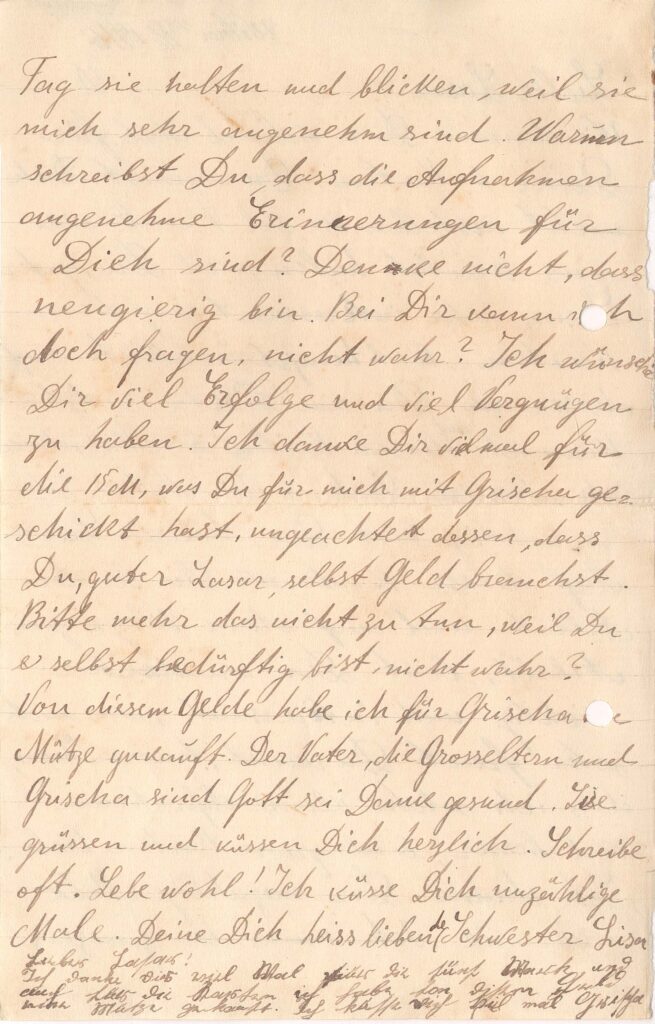 Tag sie halten und blicken, weil sie
mich sehr angenehm sind. Warum
schreibst Du, dass die Aufnahmen
angenehme Erinnerungen für
Dich sind? Denke nicht, dass
neugierig bin. Bei Dir kann ich
doch fragen, nicht wahr? Ich wünsche
Dir viel Erfolge und viel Vergnügen
zu haben. Ich danke Dir vielmal für
die 15 M, was Du für mich mit Grischa ge=
schickt hast, ungeachtet dessen, dass
Du, guter Lasar, selbst Geld brauchst.
Bitte mehr das nicht zu tun, weil Du
es selbst bedürftig bist, nicht wahr?
Von diesem Gelde habe ich für Grischa
Mütze gekauft. Der Vater, die Grosseltern und
Grischa sind Gott sei Danke gesund. Sie
grüssen und küssen Dich herzlich. Schreibe
oft. Lebe wohl! Ich küsse Dich unzählige
Male. Deine Dich heiss liebende Schwester Lisa
Lieber Lasar!
Ich danke dir viel Mal über die fünf Mark und
auch über die Karten ich habe von diesem Geld
meine Mütze gekauft. Ich küsse dich viel mal Grischa